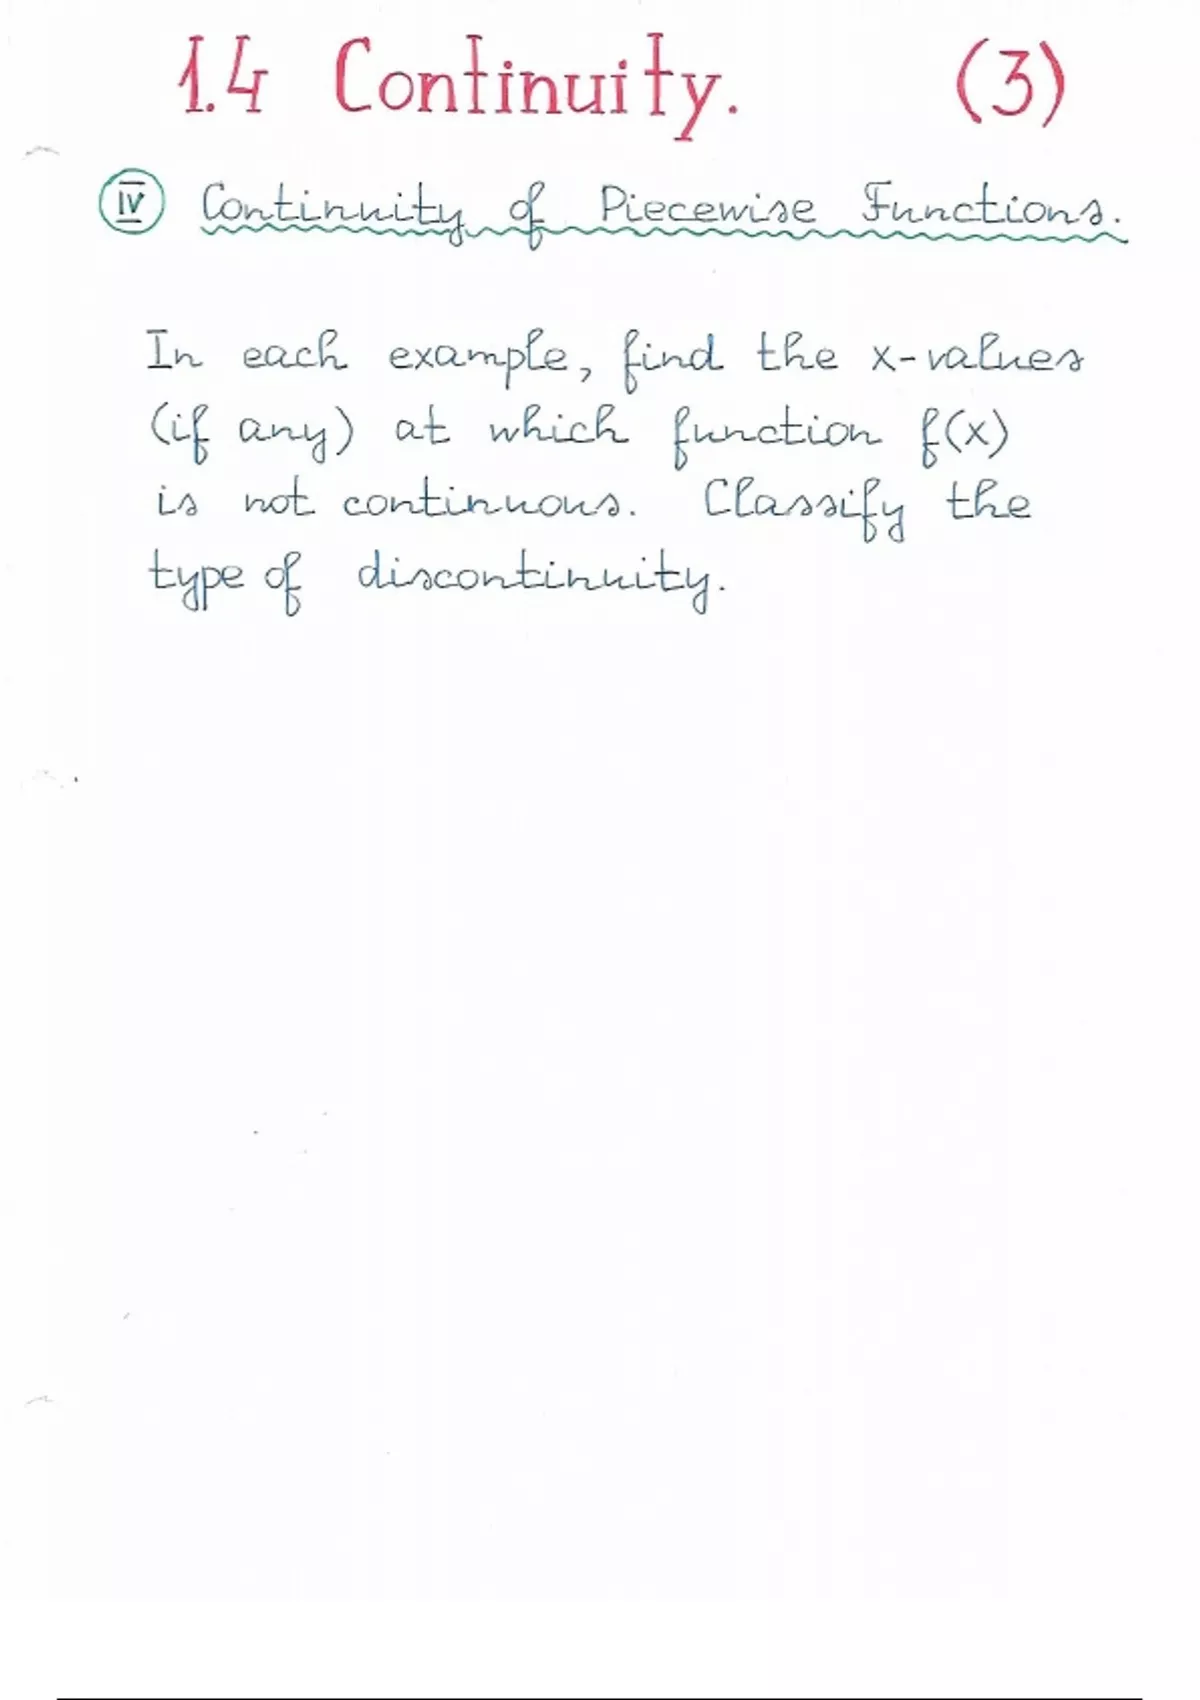 1.4 Continuity. (3)
IV Continuity of Piecewise Functions.
In each example, find the x-values
(if any) at which function f(x)
is not continuous. Classify the
type of discontinuity.